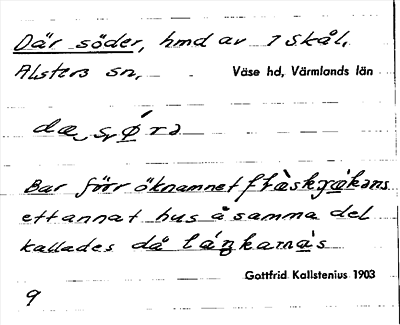 Där söder, hmd av 1 Skål.
Alsters sn. Väse hd, Värmlands län
Bar förr öknamnet
ett annat hus å samma del
kallades då
Gottfrid Kallstenius 1903
9